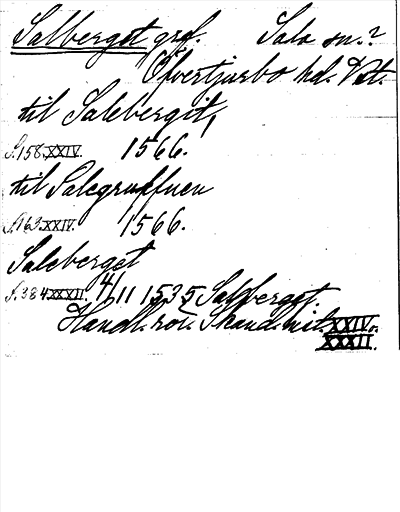 Salberget grf. Sala sn.?
Öfvertjurbo hd. Vstm.
til Salebergit,
S.158.XXIV. 1566.
til Salegruffuen
S.163.XXIV. 1566.
Saleberget
S.384.XXXII. 4/11 1535 Salberget
Handl. rör. Skand. hist. XXIV.
XXXII.